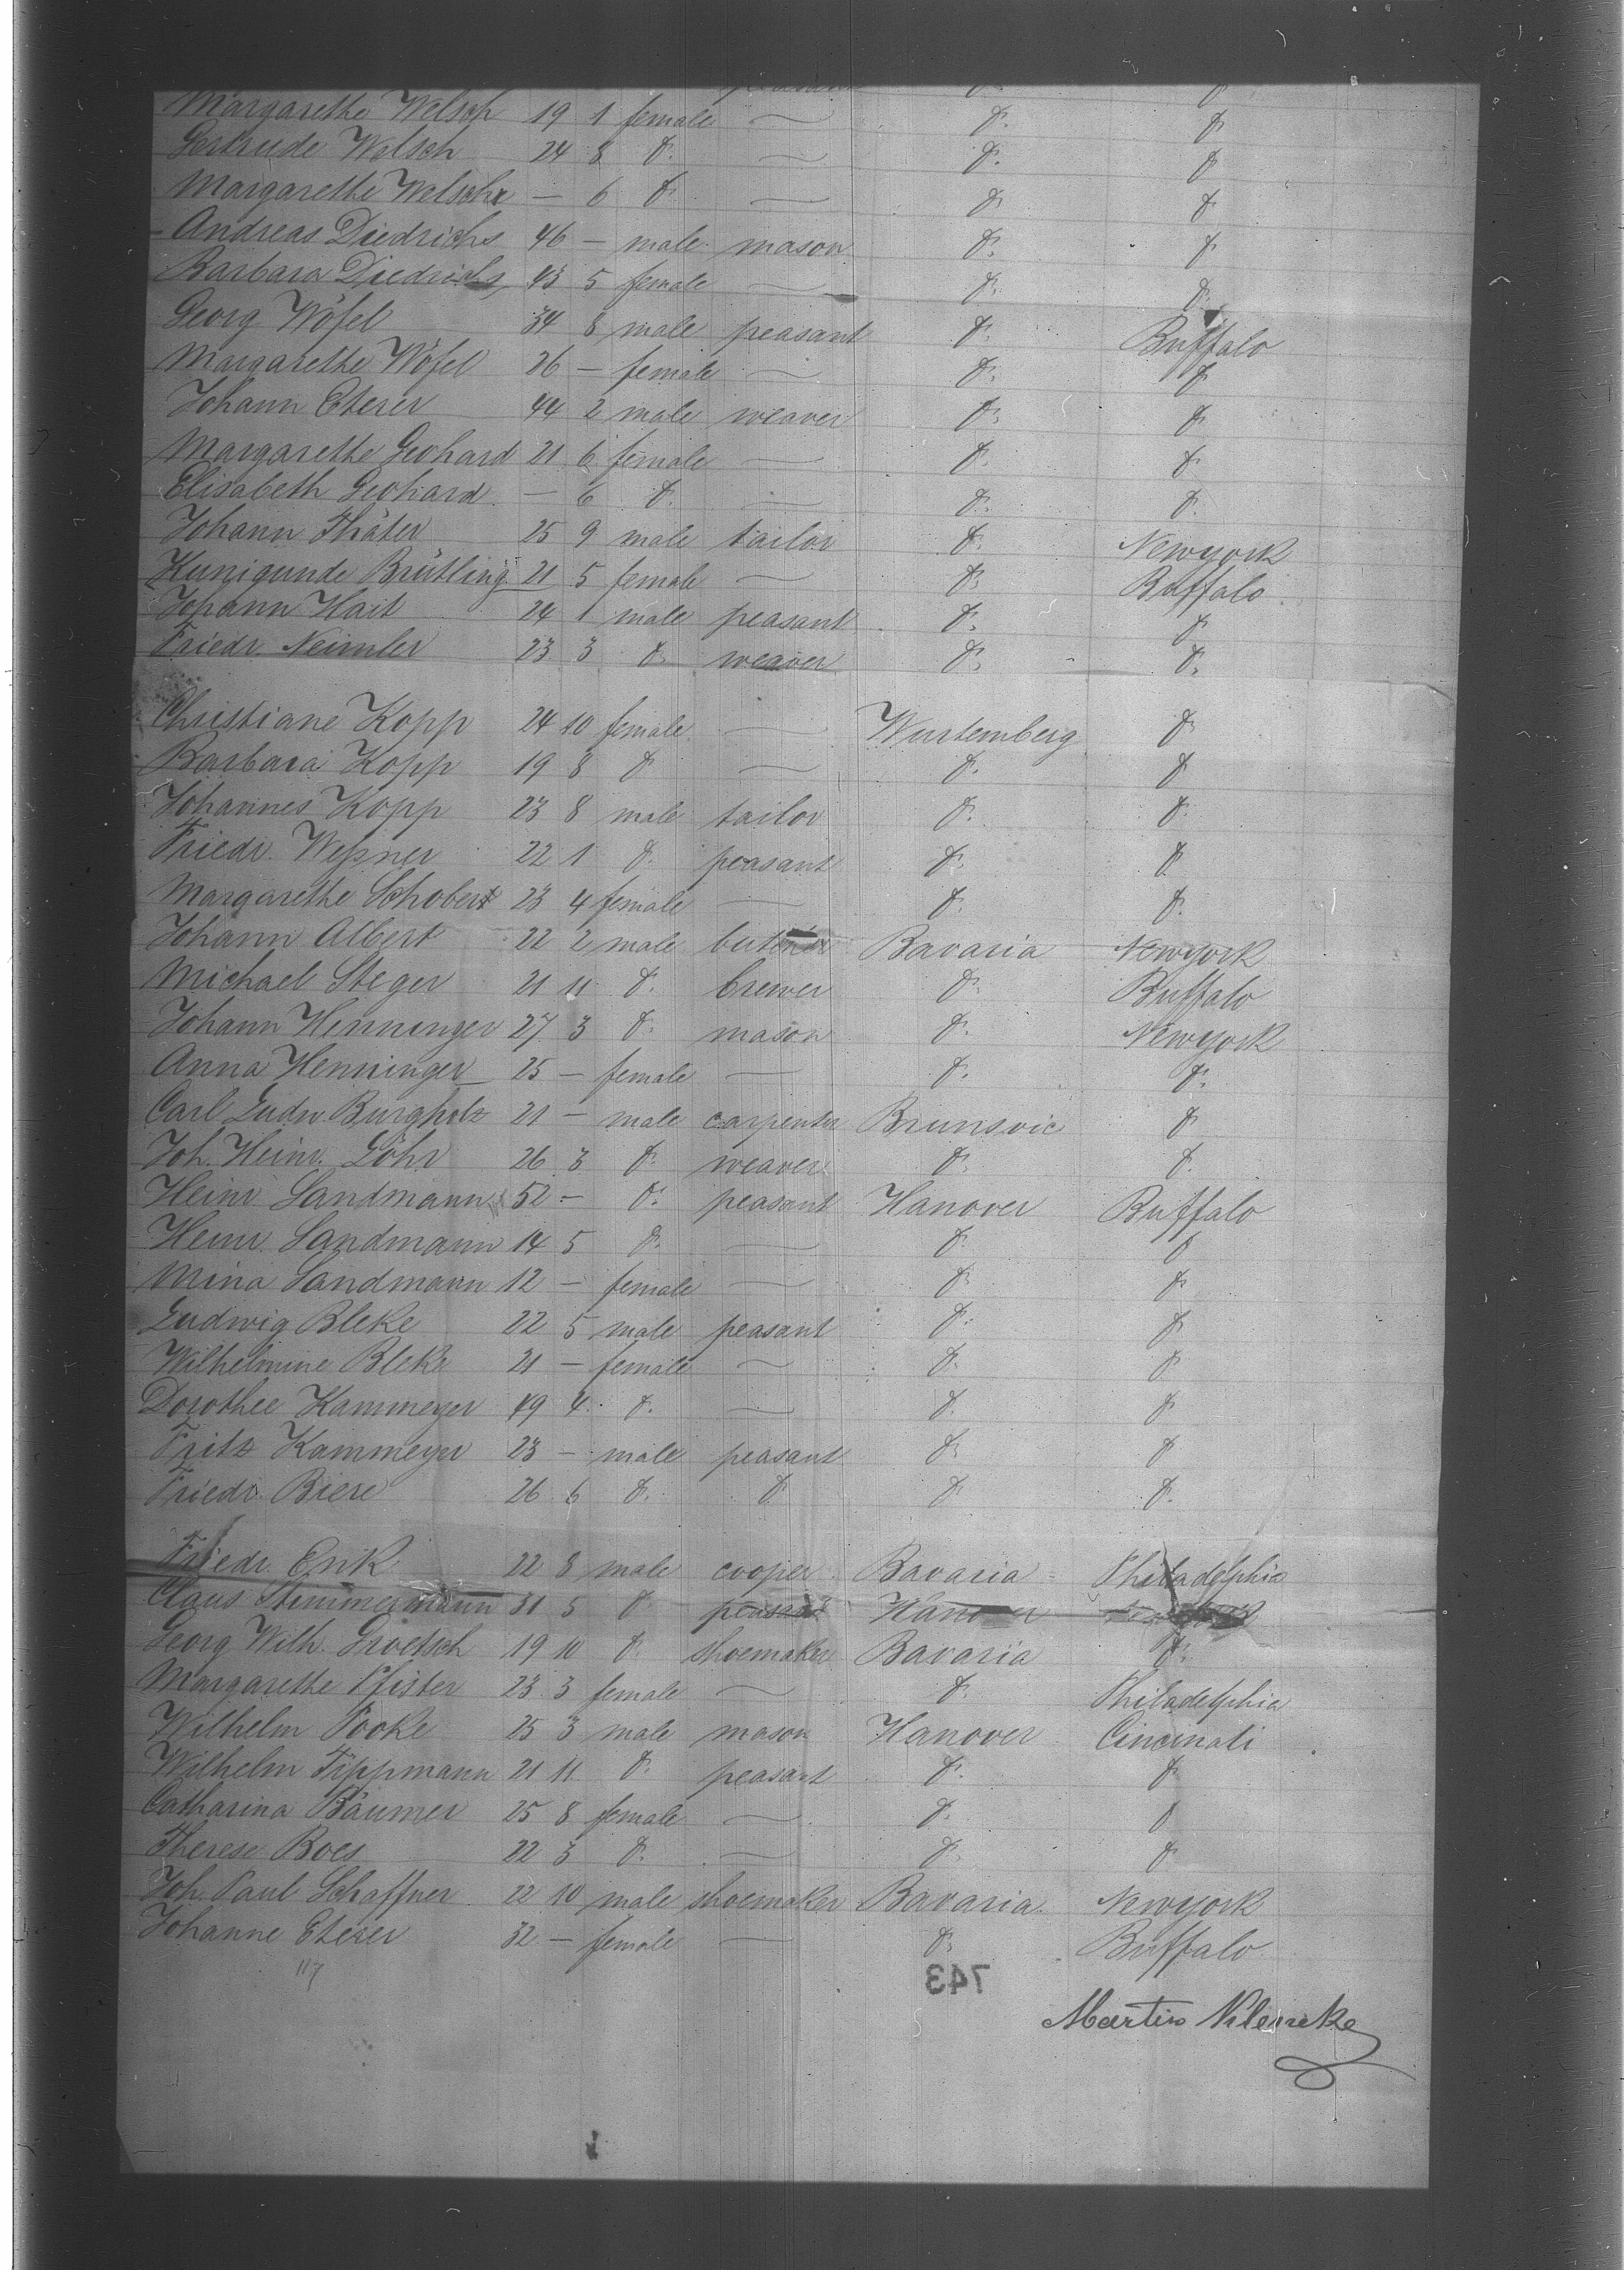 peasant d. d.
Margarethe Welsch 19 1 female — d. d.
Gertrude Welsch 24 8 d. — d. d.
Margarethe Welsch — 6 d. — d. d.
Andreas Diedrichs 46 — male mason d. d.
Barbara Diedrichs 43 5 female — d. d.
Georg Wöfel 34 8 male peasant d. Buffalo
Margarethe Wöfel 26 — female — d. d.
Johann Eterer 44 2 male weaver d. d.
Margarethe Geohard 21 6 female — d. d.
Elisabeth Geohard — 6 d. — d. d.
Johann Thäter 25 9 male tailor d. Newyork
Kunigunde Brütling 21 5 female — d. Buffalo
Johann Hait 24 1 male peasant d. d.
Friedr. Neimler 23 3 d. weaver d. d.
Christiane Kopp 24 10 female — Wurtemberg d.
Barbara Kopp 19 8 d. — d. d.
Johannes Kopp 23 8 male tailor d. d.
Friedr. Weßner 22 1 d. peasant d. d.
Margarethe Schobert 23 4 female — d. d.
Johann Albert 22 2 male Bavaria Newyork
Michael Steger 21 11 d. brewer d. Buffalo
Johann Henninger 27 3 d. mason d. Newyork
Anna Henninger 25 — female — d. d.
Carl Ludw. Burgholz 21 — male carpenter Brunsvic d.
Joh. Heinr. Löhr 26 3 d. weaver d. d.
Heinr. Landmann 52 — d. peasant Hanover Buffalo
Heinr. Landmann 14 5 d. — d. d.
Mina Landmann 12 — female — d. d.
Ludwig Bleke 22 5 male peasant d. d.
Wilhelmine Bleke 21 — female — d. d.
Dorothee Kammeyer 49 4 d. — d. d.
Fritz Kammeyer 23 — male peasant d. d.
Friedr. Biere 26 6 d. d. d. d.
Friedr. Enk 22 8 male cooper Bavaria Philadelphia
Claus Stemmermann 31 5 d. peasant Hanover
Georg Wilh. Groetsch 19 10 d. shoemaker Bavaria d.
Margarethe Pfister 23 3 female — d. Philadelphia
Wilhelm Pooke 25 3 male mason Hanover Cincinati
Wilhelm Tippmann 21 11 d. peasant d. d.
Catharina Bäumer 25 8 female — d. d.
Therese Boes 22 3 d. — d. d.
Joh. Paul Schaffner 22 10 male shoemaker Bavaria Newyork
Johanne Eterer 32 — female — d. Buffalo
117
743
Martin